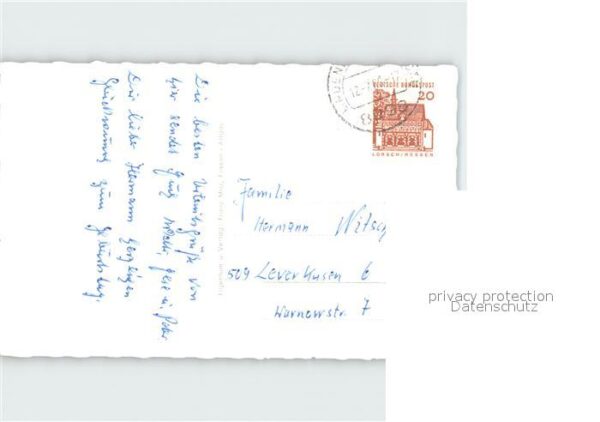 Die besten Urlaubsgrüße von
hier sendet Euch
Dir lieber Hermann herzlichen
Glückwunsch zum Geburtstag.
DEUTSCHE BUNDESPOST
20
LORSCH/HESSEN
Familie
Hermann Witsch
509 Leverkusen 6
Warnowstr. 7
privacy protection
Datenschutz